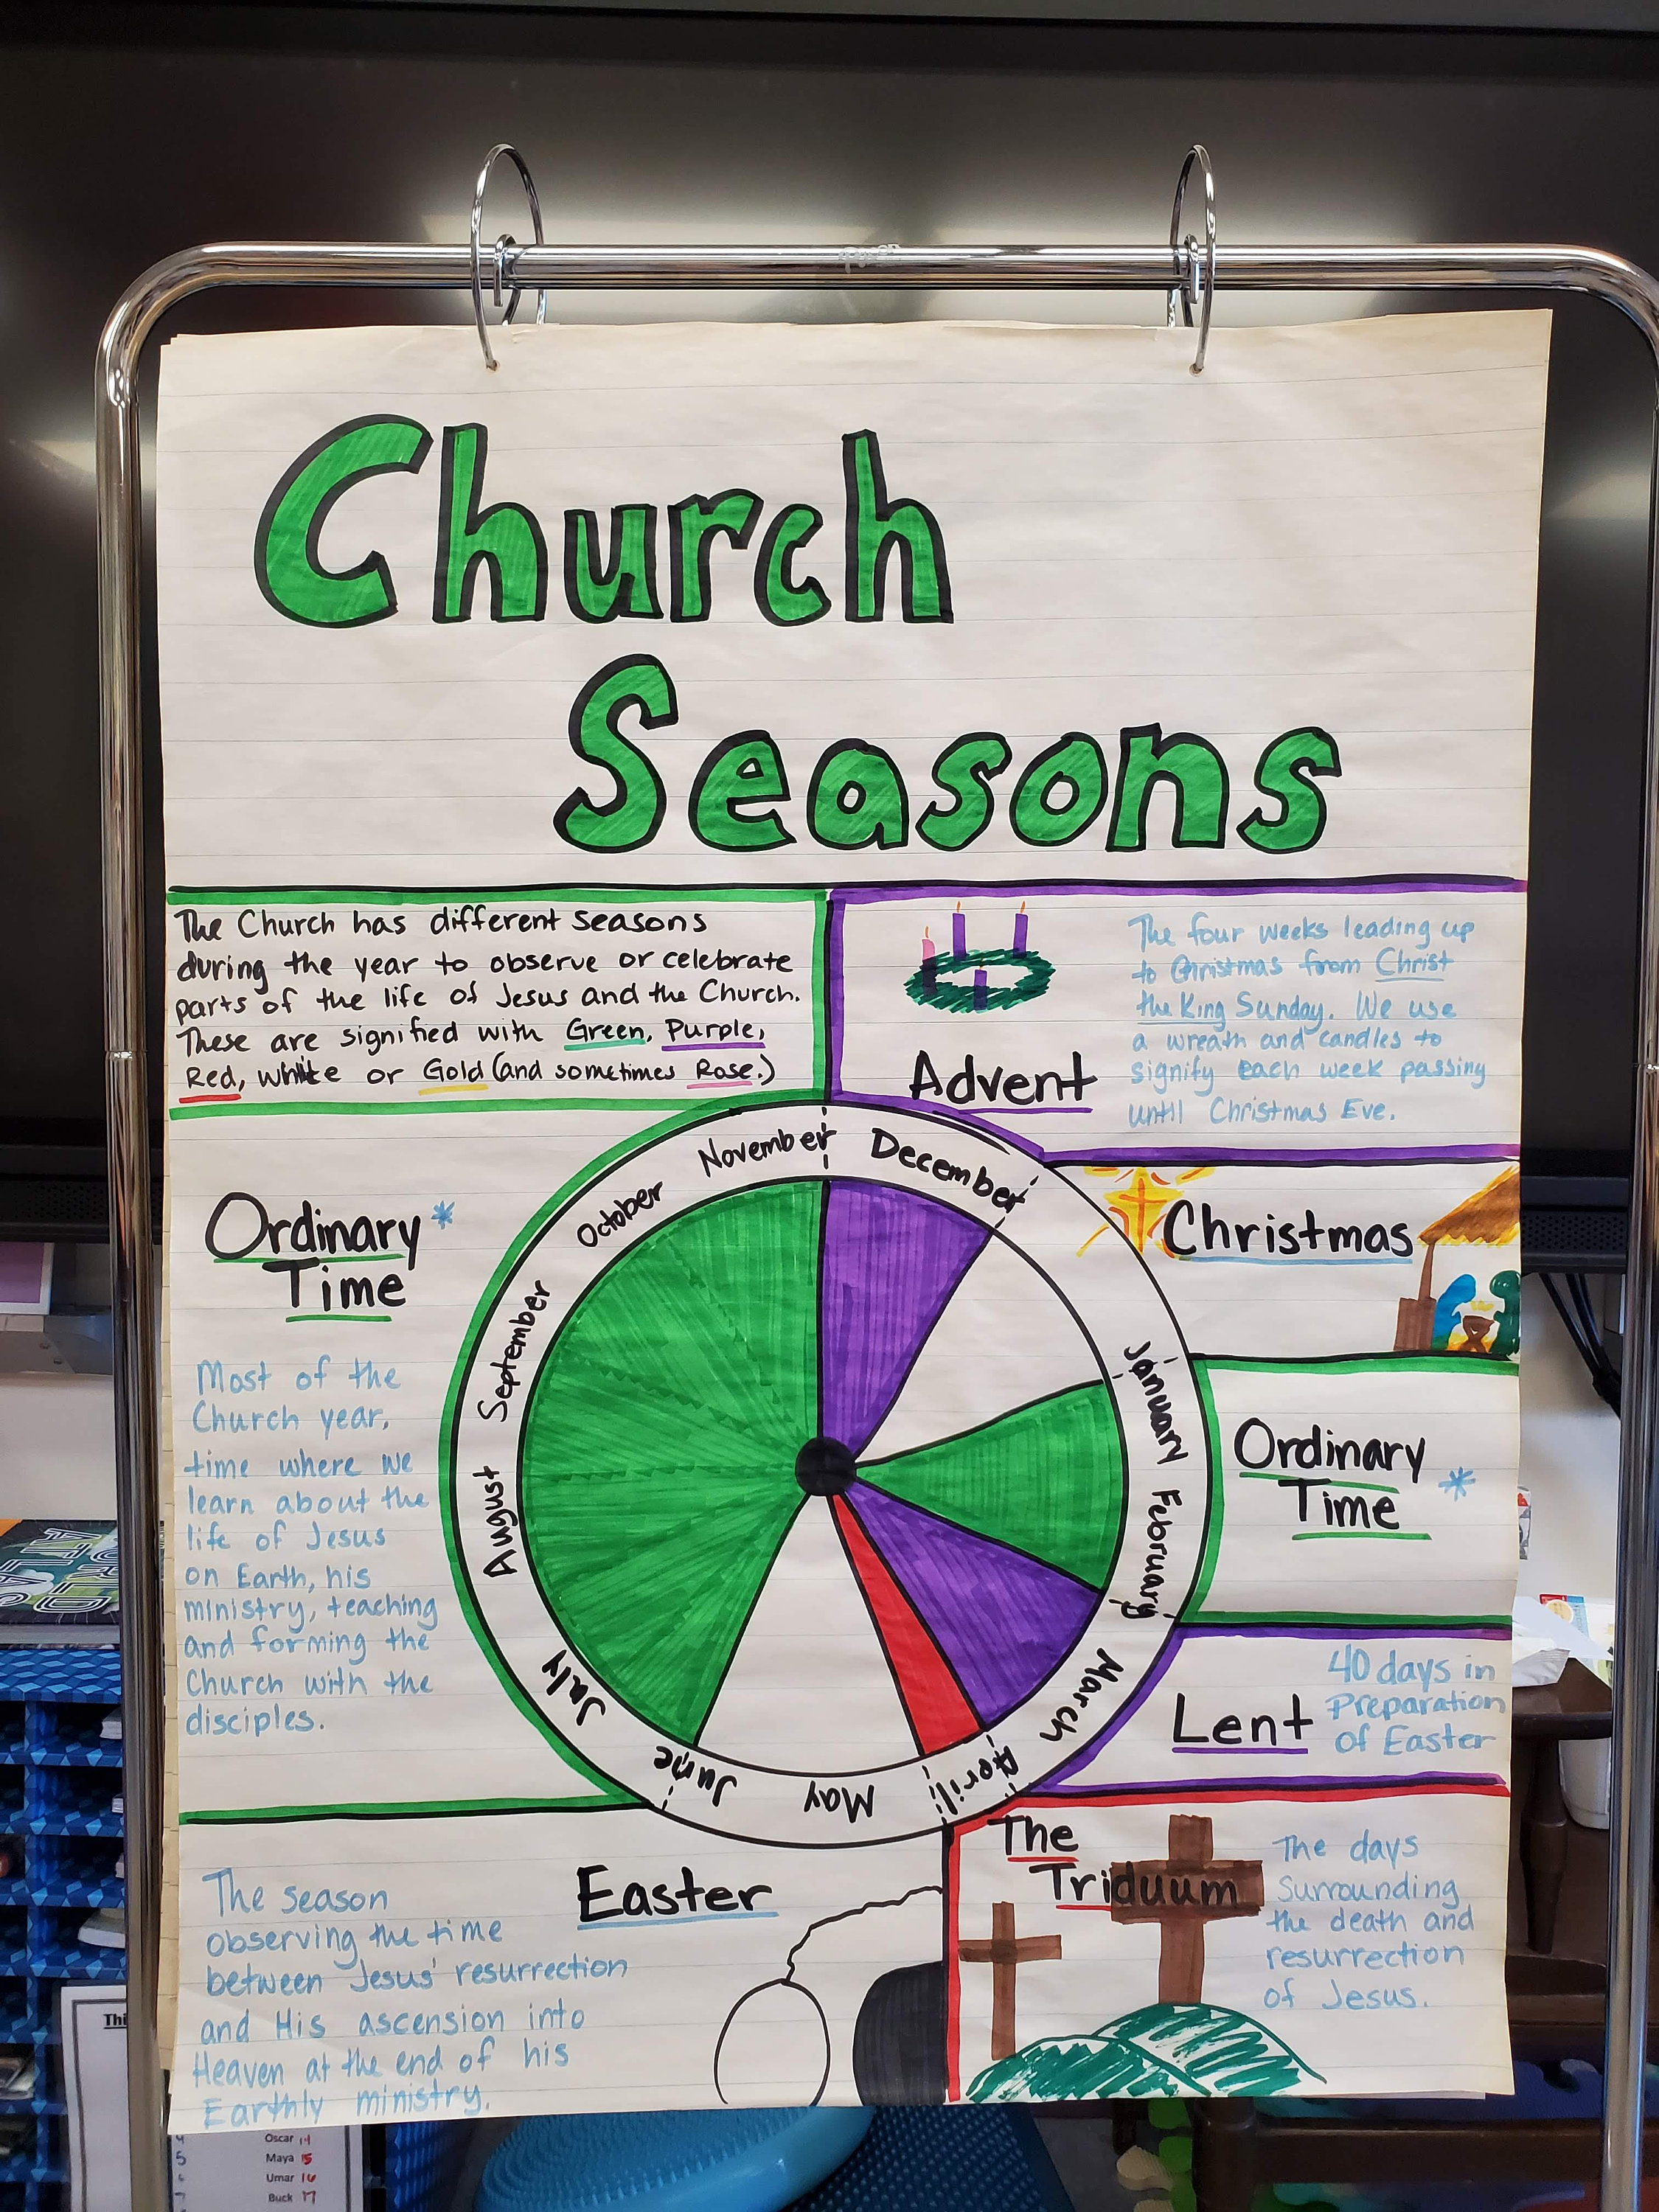 Church
Seasons
The Church has different seasons
during the year to observe or celebrate
parts of the life of Jesus and the Church.
These are signified with Green, Purple,
Red, white or Gold (and sometimes Rose.)
Advent
The four weeks leading up
to Christmas from Christ
the King Sunday. We use
a wreath and candles to
signify each week passing
until Christmas Eve.
Christmas
Ordinary *
Time
Lent
40 days in
Preparation
of Easter
The
Triduum
The days
Surrounding
the death and
resurrection
of Jesus.
Easter
The season
observing the time
between Jesus' resurrection
and His ascension into
Heaven at the end of his
Earthly ministry.
Ordinary *
Time
Most of the
Church year,
time where we
learn about the
life of Jesus
on Earth, his
ministry, teaching
and forming the
Church with the
disciples.
November
December
January
February
March
April
May
June
July
August
September
October
ATLAS
Thi
Oscar 14
5 Maya 15
Umar 16
Buck 17